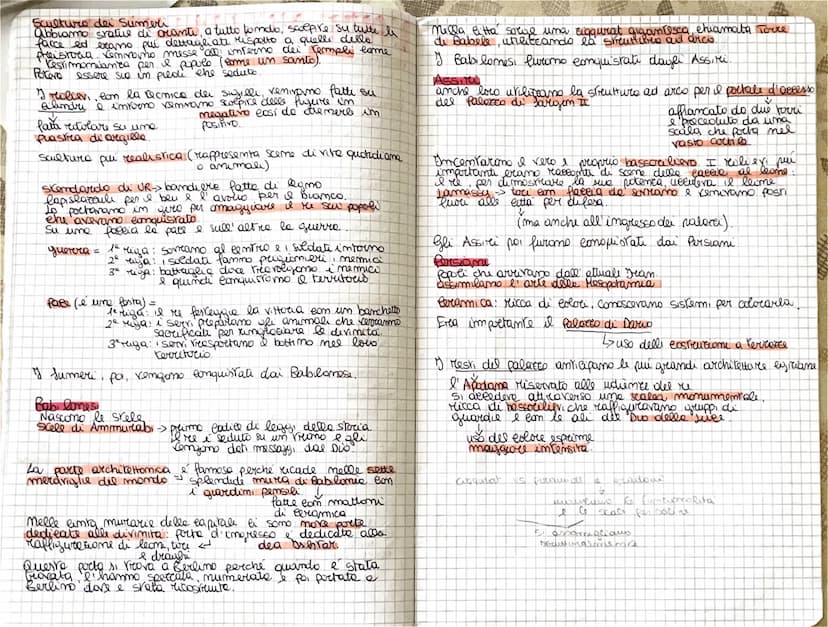 Scultura dei Sumeri
Abbiamo statue di oranti, a tutto tondo, scolpire su tutte le
facce ed erano più dettagliata rispetto a quelli della
preistoria. Venivano messe all'interno dei Templi come
testimonianza per il popolo (come un santo).
Potevo essere sia in piedi che seduto.
I rilievi, con la tecnica dei sigilli, venivano fatti su
cilindri e intorno venivano scolpite delle figure in
negativo così da ottenerle in
positivo.
fatti rotolare su una
piastra di argilla
Scultura più realistica (rappresenta scene di vita quotidiana
o animali)
Stendardo di UR → bandiere fatta di legno
lapislazzuli per il blu e l'avorio per il bianco.
Lo portavano in giro per omaggiare il re sui popoli
che avevano conquistato
Su una faccia la pace e sull'altra la guerra.
guerra = 1ª riga: sovrano al centro e i soldati intorno
2ª riga: i soldati fanno prigionieri i nemici
3ª riga: battaglia dove travolgono i nemici
e quindi conquistano il territorio
Pace (è una festa) =
1ª riga: il re festeggia la vittoria con un banchetto
2ª riga: i servi preparano gli animali che verranno
sacrificati per ringraziare la divinità
3ª riga: i servi trasportano il bottino nel loro
territorio
I Sumeri, poi, vengono conquistati dai Babilonesi.
Babilonesi
Nascono le stele
Stele di Ammurabi → primo codice di leggi della storia
Il re è seduto su un trono e gli
vengono dati messaggi dal Dio
La parte architettonica è famosa perché ricade nelle sette
meraviglie del mondo → splendide mura di Babilonia con
i giardini pensili
fatte con mattoni
di ceramica
Nelle cinta murarie della capitale ci sono nove porte
dedicate alla divinità: porta d'ingresso è dedicata alla
raffigurazione di leoni, tori ← dea Ishtar
e draghi
Questa porta si trova a Berlino perché quando è stata
trovata, l'hanno spezzata, numerata e poi portata a
Berlino dove è stata ricostruita.
Nella città sorge una ziggurat gigantesca, chiamata Torre
di Babele, utilizzando la struttura ad arco
I Babilonesi furono conquistati dagli Assiri.
Assiri
anche loro utilizzano la struttura ad arco per il portale d'accesso
del Palazzo di Sargon II
affiancato da due torri
e preceduto da una
scala che porta nel
vasto cortile
Incentarono il vero e proprio bassorilievo I rilievi più
importanti erano racconti di scene della caccia al leone:
il re per dimostrare la sua potenza, uccideva il leone
Lamassu → tori con faccia da sovrano e venivano posti
fuori alle città per difesa.
(ma anche all'ingresso dei palazzi).
Gli Assiri poi furono conquistati dai Persiani
Persiani
Popoli che arrivano dall'attuale Iran
assimilano l'arte della Mesopotamia
Ceramica: ricca di colori, conoscevano sistemi per colorarla.
Era importante il Palazzo di Dario
↳ uso delle costruzione a terrazze
I resti del palazzo anticipano le più grandi architetture egiziane
l'Apadana riservato alle udienze del re
si accedeva attraverso una scalea monumentale,
ricca di bassorilievi che raffiguravano gruppi di
guardie e con le ali del Dio della luce
uso del colore esprime
maggiore intensità.
ziqqurat e piramidi a gradoni
la funzionalità
e le scale per salire
si assomigliano